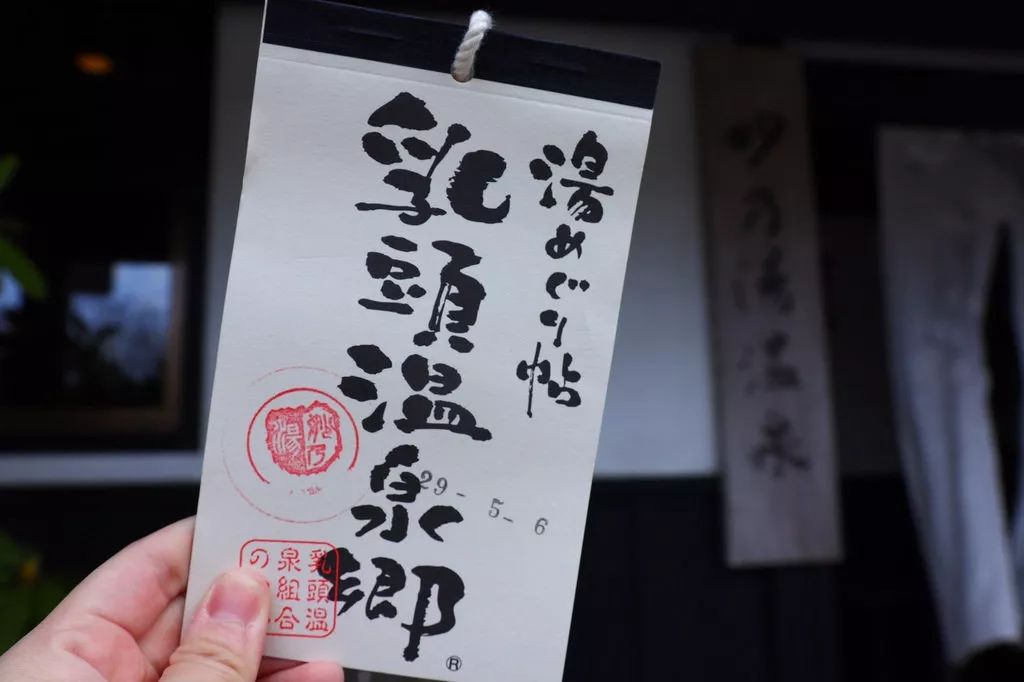 湯めぐり帖
乳頭温泉郷
®
29- 5- 6
妙乃湯
乳頭温
泉組合
の
妙乃湯温泉